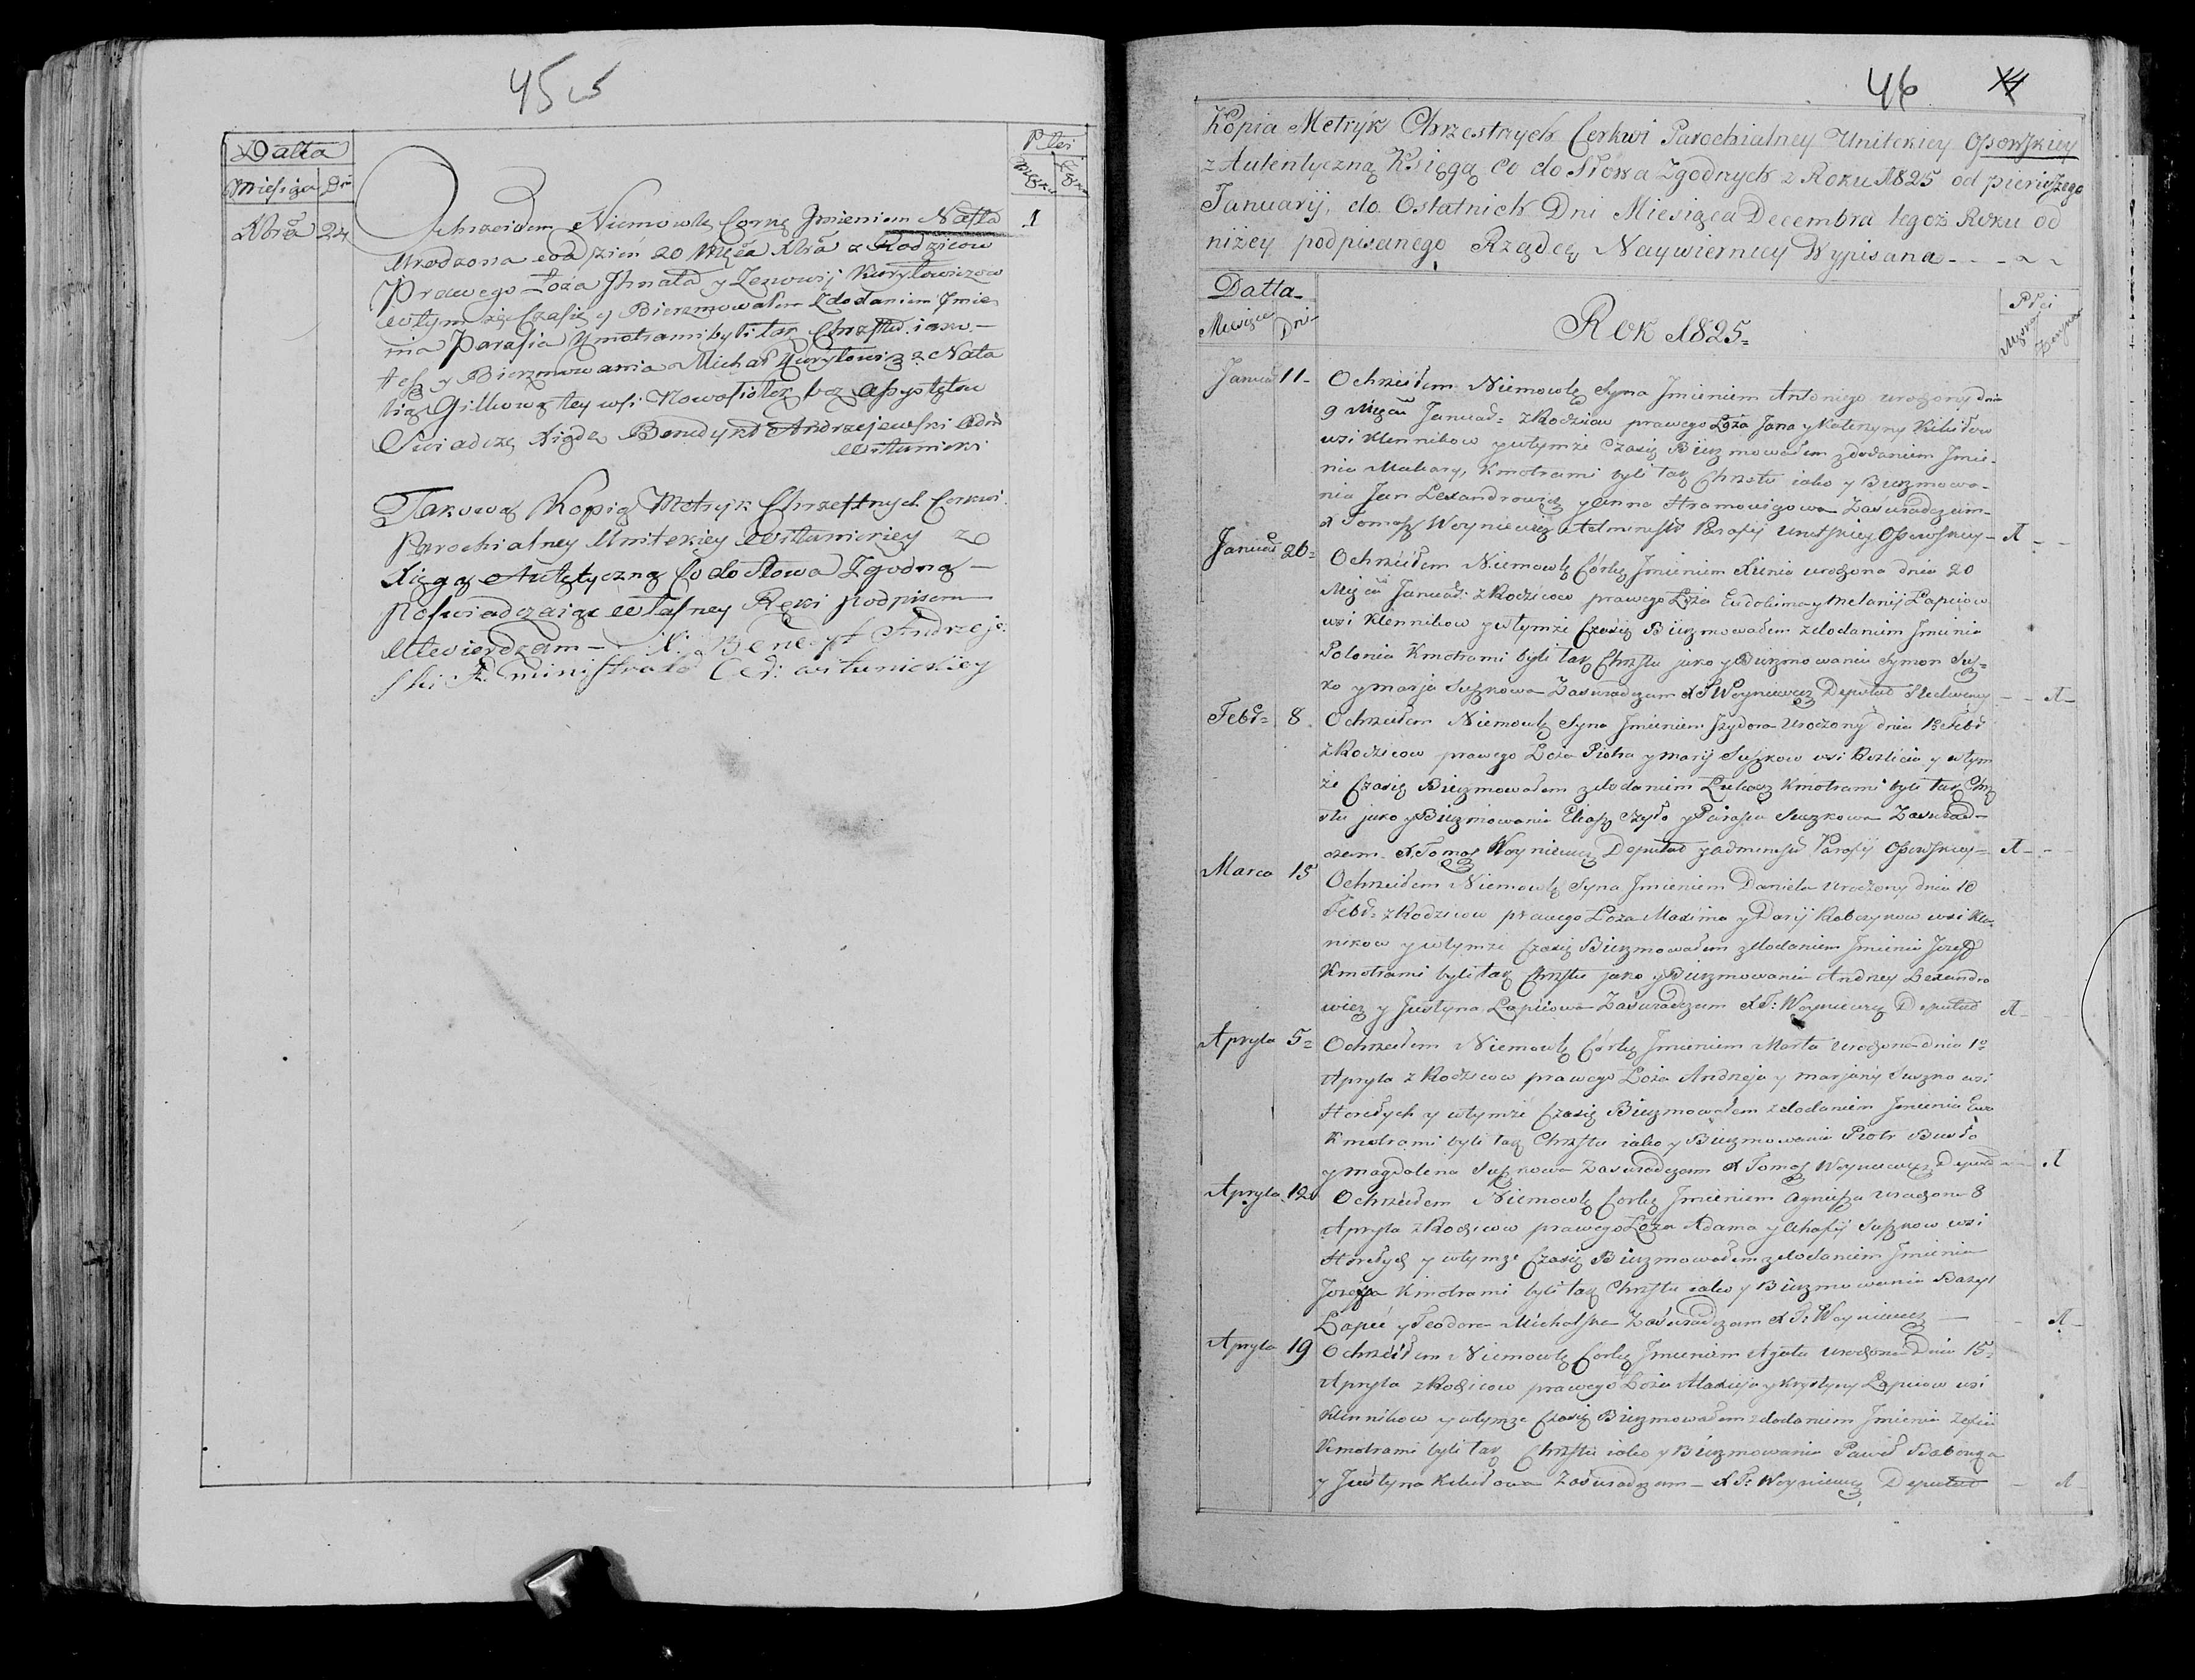 45 об
Datta
Miesiąca Dni
Płci
Męzka Żeńska
Xbra 24
Ochrzciłem Niemowle Corkę Jmieniem Nasta 1
Urodzona w dzień 20 Mca Xbra z Rodzicow
Prawego Łoża Jhnata y Zenowij Kuryłowiczow
w tym że Czasie y Bierzmowałem z dodaniem Jmie
nia Parasia Kmotrami byli tak Chrztu iako
też y Bierzmowania Michał Kuryłowicz z Nata
lią Gilkową tey wsi Nowosiołek bez assystetow
Swiadczę Xiądz Benedykt Andrzejewski Adm
Witunicki
Takową Kopią Metryk Chrzestnych Cerkwi
Parochialney Unitckiey Witunickiey z
Xięgą Autętyczną Co do Słowa Zgodną
Poswiadczaiąc Własney Ręki podpisem
Utwierdzam - X: Benedykt Andrzeje:
ski Administrator Cer: witunickiey
46 44
Kopia Metryk Chrzestnych Cerkwi Parochialney Unitckiey Osowskiey
z Autentyczną Księgą Co do Słowa Zgodnych z Roku 1825 od pierwszego
Januarij, do Ostatnich Dni Miesiąca Decembra tegoż Roku od
niżey podpisanego Rządcę Naywierniey Wypisana
Datta
Miesiąca Dni
Rok 1825=
Płci
Męzka Żeńska
Januar 11 - Ochrzciłem Niemowlę Syna Jmieniem Antoniego urodzony dnia
9 Mca Januar= z Rodzicow prawego Łoża Jana y Kateryny
wsi Klennikow y wtymże Czasie Bierzmowałem z dodaniem Jmie-
nia Makary, Kmotrami byli tak Chrztu iako y Bierzmowa-
nia Jan Lexandrowicz y Anna Hramowiczowa Zaświadczam
X Tomasz Woyniewicz Administr Parafij Unitskiey Osowskiey - 1 -
Januar 26= Ochrzciłem Niemowlę Córkę Jmieniem Xienia urodzona dnia 20
Mca Januar: z Rodzicow prawego Łoża Eudokima y Melanij Łapciow
wsi Klennikow y wtymże Czasie Bierzmowałem z dodaniem Jmienia
Polonia Kmotrami byli tak Chrztu jako y Bierzmowania Symon Susz=
ko y Marja Suszkowa Zaświadczam X T Woyniewicz Deputat - - 1 -
Febr= 8 Ochrzciłem Niemowlę Syna Jmieniem Jzydora Urodzony dnia Febr
z Rodzicow prawego Łoża Piotra y Marij Suszkow wsi y wtym
że Czasie Bierzmowałem z dodaniem Łukasz Kmotrami byli tak Chrz
stu jako y Bierzmowania Eliasz y Parasia Suszkowa Zaświad-
czam X. Tomasz Woyniewicz Deputat y Administr Parafij Osowskiey= 1 -
Marca 15 Ochrzciłem Niemowlę Syna Jmieniem Daniela Urodzony dnia 10
Febr= z Rodzicow prawego Łoża Maxima y Darij wsi Kle-
nikow y wtymże Czasie Bierzmowałem z dodaniem Jmienia Jozeff
Kmotrami byli tak Chrztu jako y Bierzmowania Andrzey Lexandro
wicz y Justyna Łapciowa Zaświadczam X T: Woyniewicz Deputat 1 -
Apryla 5= Ochrzciłem Niemowlę Córkę Jmieniem Marta urodzona dnia 1o
Apryla z Rodzicow prawego Łoża Andrzeja y Marjany Suszko wsi
y wtymże Czasie Bierzmowałem z dodaniem Jmienia Ewa
Kmotrami byli tak Chrztu iako y Bierzmowania Piotr
y Magdalena Suszkowa Zaświadczam X Tomasz Woyniewicz Deputat - 1
Apryla 12 Ochrzciłem Niemowlę Corkę Jmieniem Agnieszka urodzona 8
Apryla z Rodzicow prawego Łoża Adama y Ahafij Suszkow wsi
y wtymże Czasie Bierzmowałem z dodaniem Jmienia
Jozefa Kmotrami byli tak Chrztu iako y Bierzmowania Bazyl
Łapcć y Teodora Michalska Zaświadczam X T: Woyniewicz - - 1 -
Apryla 19 Ochrzciłem Niemowlę Corkę Jmieniem Agata urodzona Dnia 15=
Apryla z Rodzicow prawego Łoża y Krystyny Łapciow wsi
Klennikow y wtymże Czasie Bierzmowałem z dodaniem Jmienia Zofia
Kmotrami byli tak Chrztu iako y Bierzmowania Paweł
y Justyna Zaświadczam - X T: Woyniewicz Deputat - 1 -